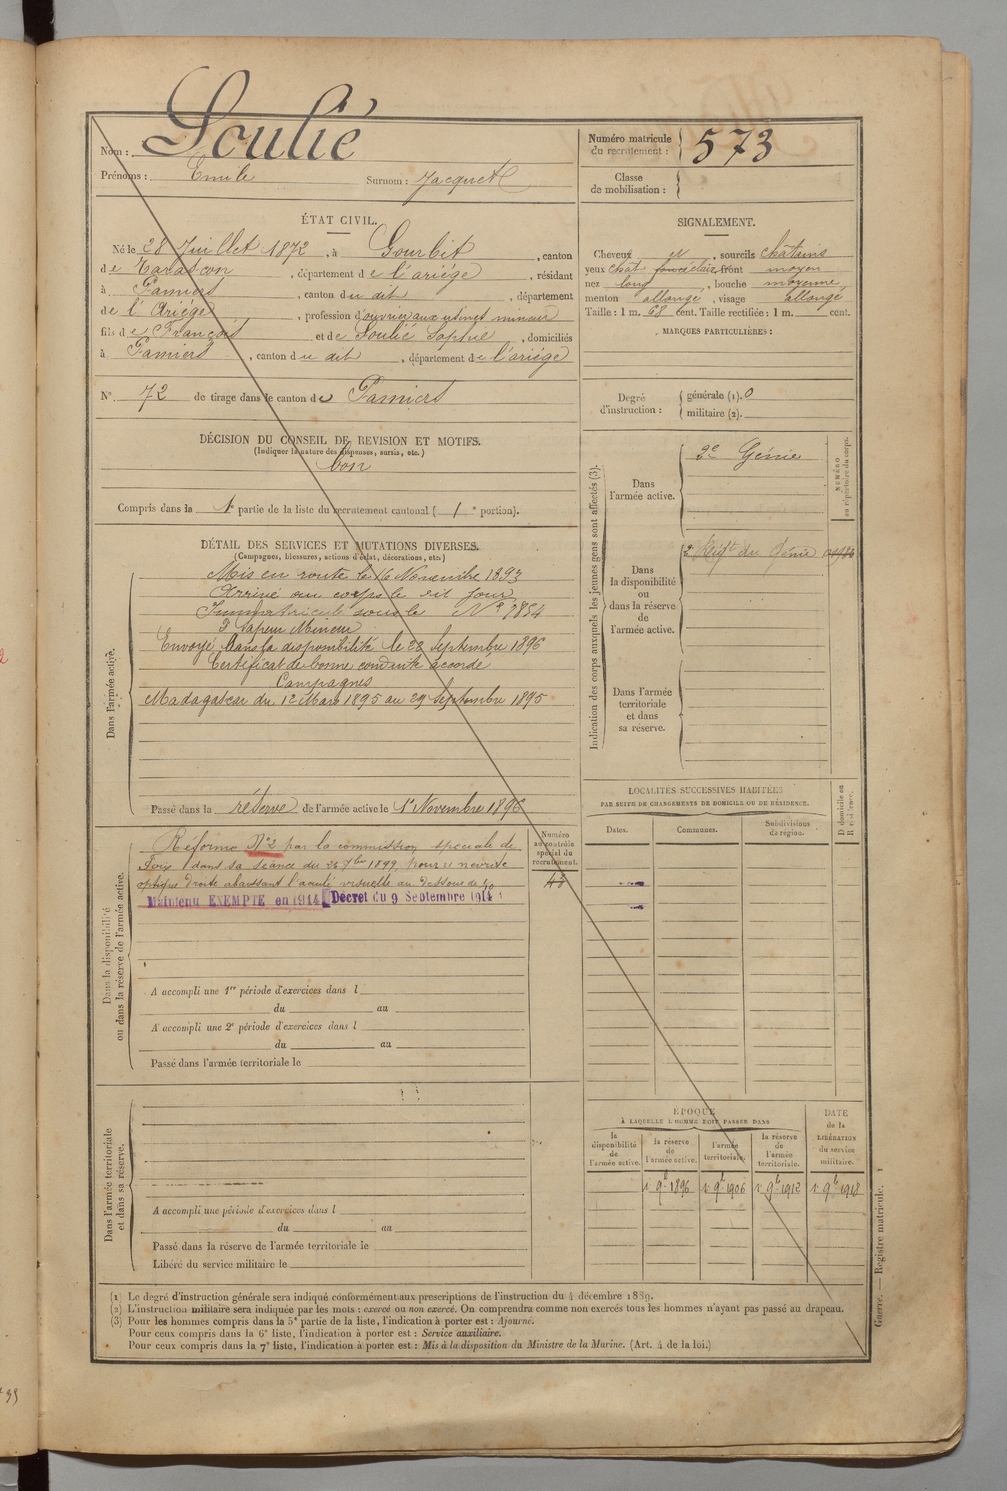 Nom : Soulié
Prénoms : Emile Surnom : Jacquet
ÉTAT CIVIL.
Né le 28 Juillet 1872, à Gourbit, canton
de Tarascon, département de l'ariège, résidant
à Pamiers, canton du dit, département
de l'Ariège, profession d'ouvrier aux usines mineur
fils de François et de Soulié Sophie, domiciliés
à Pamiers, canton du dit, département de l'ariège
N° 72 de tirage dans le canton de Pamiers
DÉCISION DU CONSEIL DE REVISION ET MOTIFS.
(Indiquer la nature des dispenses, sursis, etc.)
bon
Compris dans la 1e partie de la liste du recrutement cantonal ( 1 e portion).
DÉTAIL DES SERVICES ET MUTATIONS DIVERSES.
(Campagnes, blessures, actions d'éclat, décorations, etc.)
Dans l'armée active.
Mis en route le 16 Novembre 1893
Arrivé au corps le dit jour
Immatriculé sous le N°
Sapeur Mineur
Envoyé dans la disponibilité le 22 Septembre 1896
Certificat de bonne conduite accordé
Campagnes
Madagascar du 12 Mars 1895 au 29 Septembre 1895
Passé dans la réserve de l'armée active le 1er Novembre 1896
Dans la disponibilité
ou dans la réserve de l'armée active.
Numéro
au contrôle
spécial du
recrutement.
43
Réformé N°2 par la commission spéciale de
Foix dans sa séance du 7bre 1899, pour : névrite
optique droite abaissant l'acuité visuelle au dessous de
Maintenu EXEMPTÉ en 1914 Décret du 9 Septembre 1914
A accompli une 1re période d'exercices dans l
du au
A accompli une 2e période d'exercices dans l
du au
Passé dans l'armée territoriale le
Dans l'armée territoriale
et dans sa réserve.
A accompli une période d'exercices dans l
du au
Passé dans la réserve de l'armée territoriale le
Libéré du service militaire le
Numéro matricule
du recrutement : 573
Classe
de mobilisation :
SIGNALEMENT.
Cheveux et, sourcils châtains
yeux chat. foncé clair, front moyen
nez long, bouche moyenne,
menton allongé, visage allongé
Taille : 1 m. 68 cent. Taille rectifiée : 1 m. cent.
MARQUES PARTICULIÈRES :
Degré
d'instruction :
générale (1). 0
militaire (2).
Indication des corps auxquels les jeunes gens sont affectés (3).
NUMÉRO
au répertoire du corps.
Dans
l'armée active.
2e Génie
Dans
la disponibilité
ou
dans la réserve
de
l'armée active.
2e Régt du Génie
Dans l'armée
territoriale
et dans
sa réserve.
LOCALITÉS SUCCESSIVES HABITÉES
PAR SUITE DE CHANGEMENTS DE DOMICILE OU DE RÉSIDENCE.
D domicile ou
R résidence.
Dates. Communes. Subdivisions
de région.
ÉPOQUE
À LAQUELLE L'HOMME DOIT PASSER DANS
la
disponibilité
de
l'armée active.
la réserve
de
l'armée active.
l'armée
territoriale.
la réserve
de
l'armée
territoriale.
DATE
de la
LIBÉRATION
du service
militaire.
1r 9b 1896 1r 9b 1906 1r 9b 1912 1r 9b 1918
(1) Le degré d'instruction générale sera indiqué conformément aux prescriptions de l'instruction du 4 décembre 1889.
(2) L'instruction militaire sera indiquée par les mots : exercé ou non exercé. On comprendra comme non exercés tous les hommes n'ayant pas passé au drapeau.
(3) Pour les hommes compris dans la 5e partie de la liste, l'indication à porter est : Ajourné.
Pour ceux compris dans la 6e liste, l'indication à porter est : Service auxiliaire.
Pour ceux compris dans la 7e liste, l'indication à porter est : Mis à la disposition du Ministre de la Marine. (Art. 4 de la loi.)
Guerre. — Registre matricule.